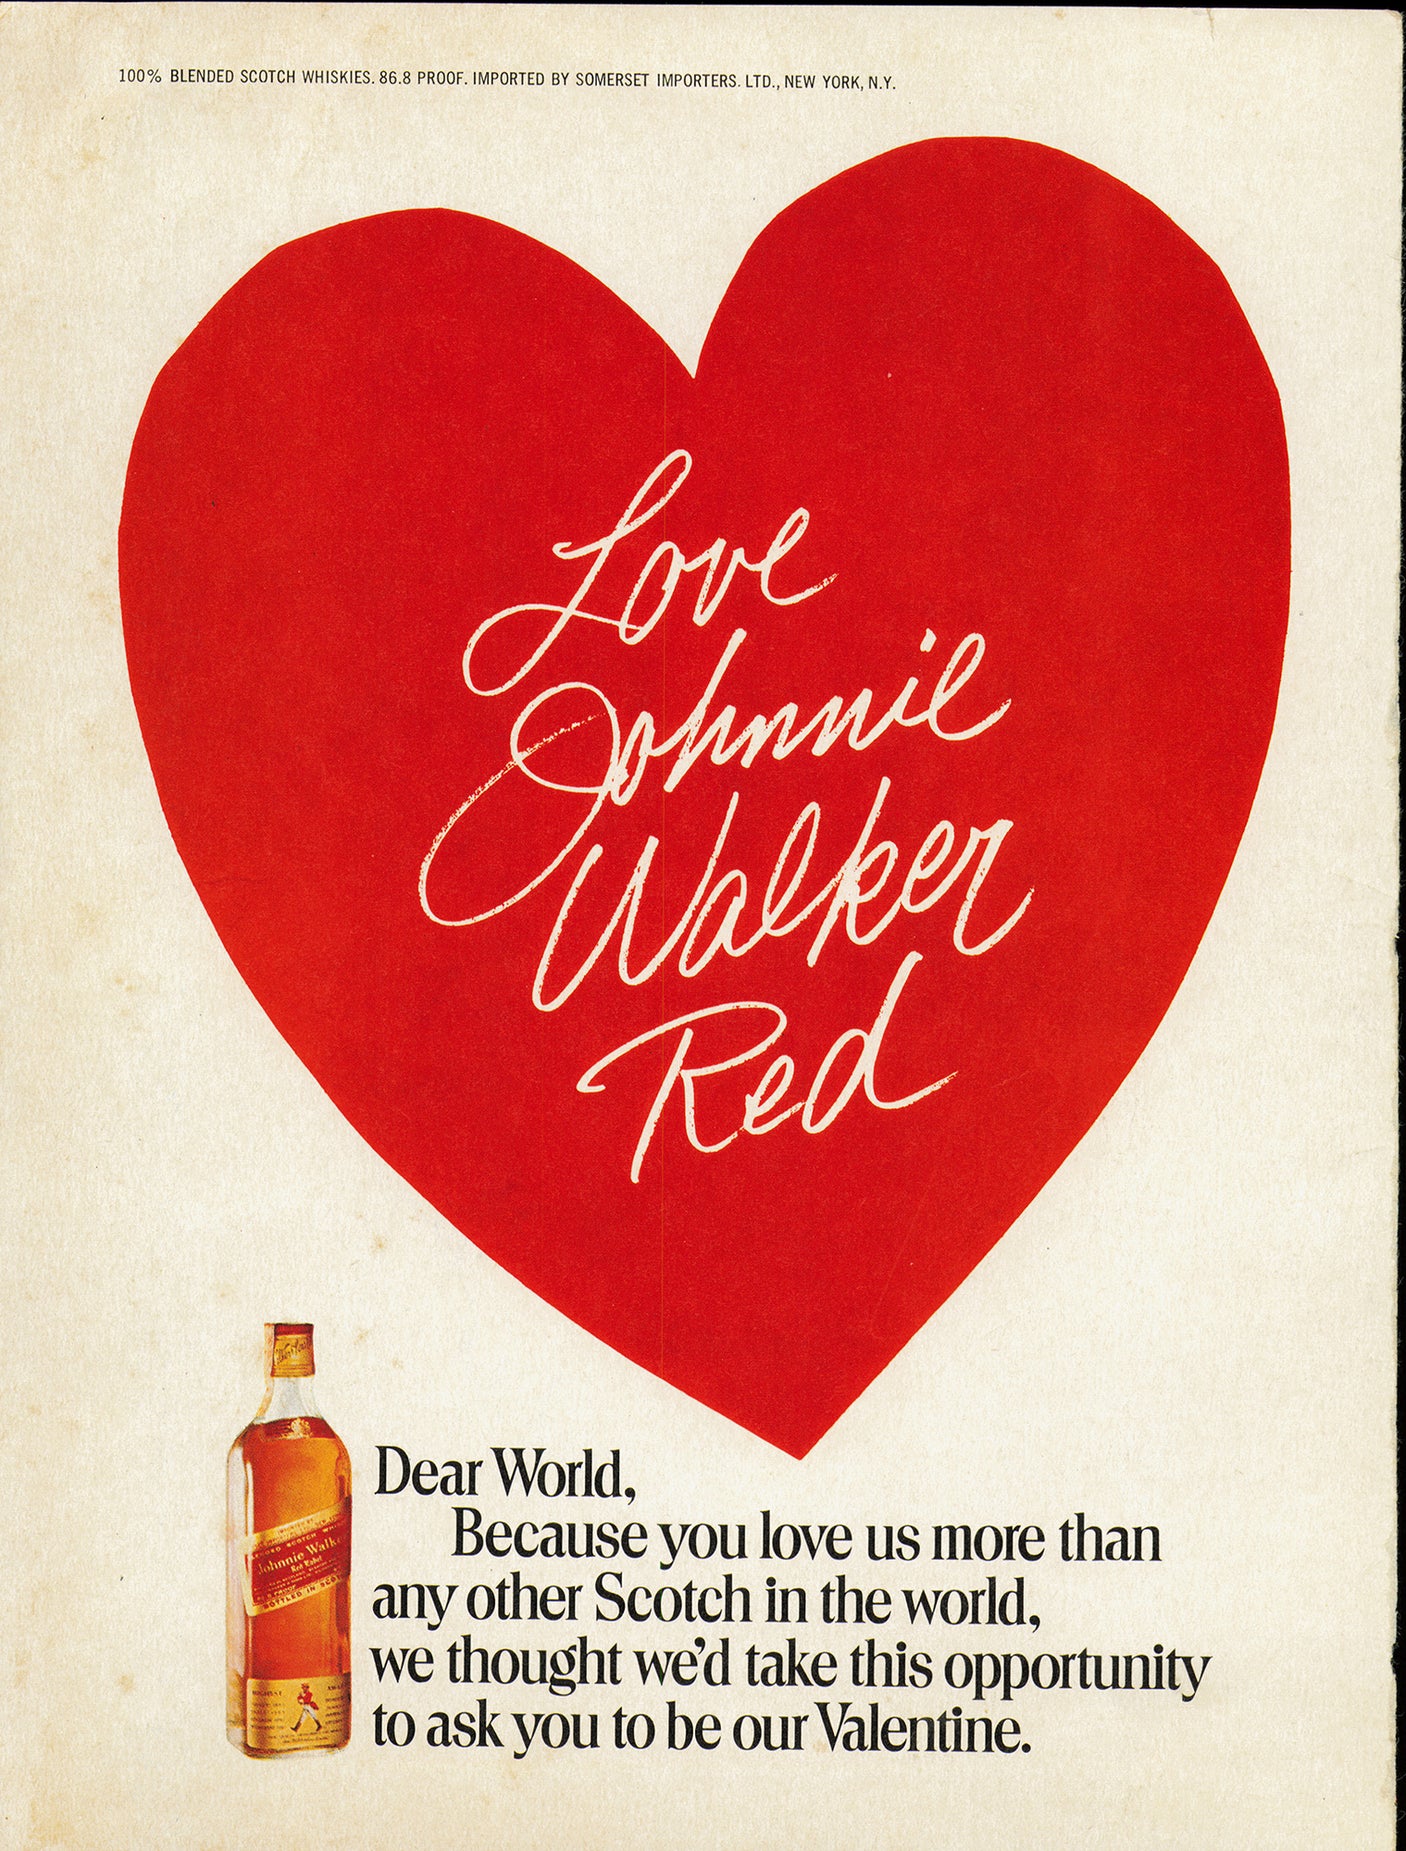 100% BLENDED SCOTCH WHISKIES. 86.8 PROOF. IMPORTED BY SOMERSET IMPORTERS. LTD., NEW YORK, N.Y.
Love
Johnnie
Walker
Red
Dear World,
Because you love us more than
any other Scotch in the world,
we thought we'd take this opportunity
to ask you to be our Valentine.
Johnnie Walk
Red Label
BOTTLED IN SCO